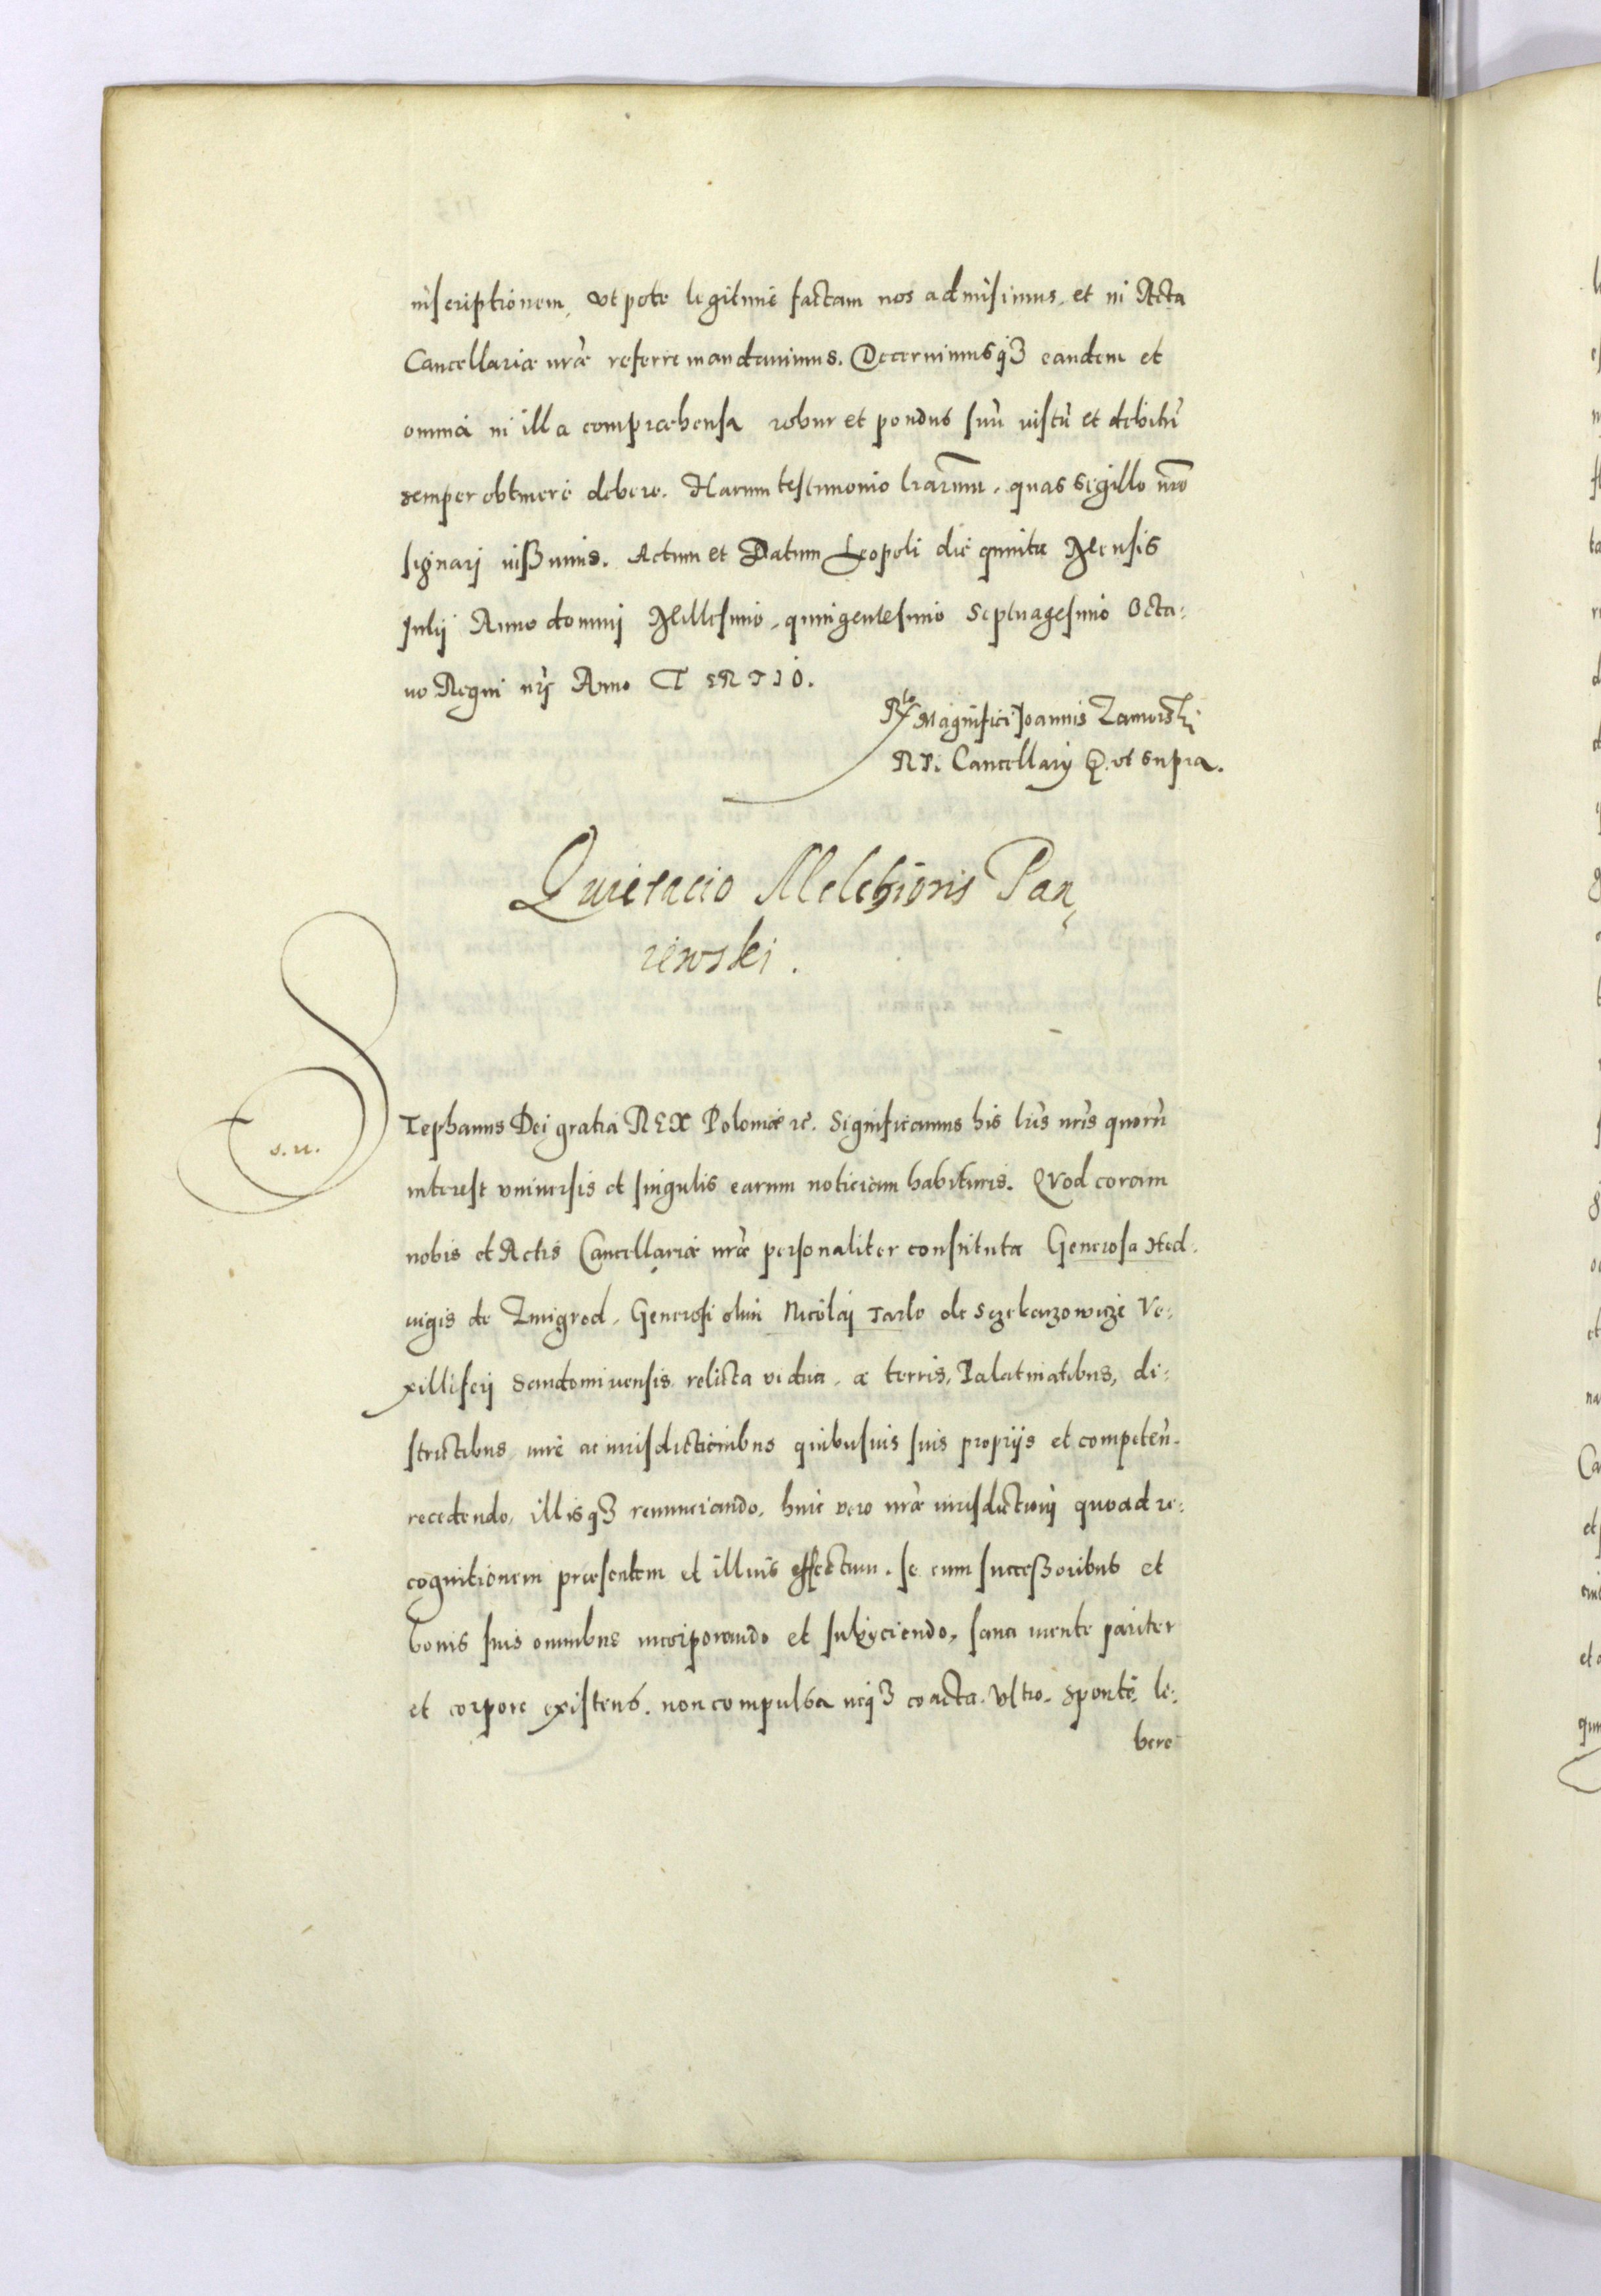 inscriptionem, vt pote legitime factam nos admisimus, et in Acta
Cancellariæ nr̃æ referre mandauimus. Decernimusq3 eandem et
omnia in illa compræhensa robur et pondus suũ iustũ et debitũ
semper obtinere debere. Harum testimonio lr̃arum, quas sigillo nr̃o
signarj iussimus. Actum et Datum Leopoli die quinta Mensis
Julij Anno dominj Millesimo, quingentesimo Septuagesimo Octa:
uo Regni nr̃j Anno TERTIO.
Rlo Magnifici Joannis Zamoiski
R P. Cancellarij p. vt supra.
Quietacio Melchioris Pan,
iewski.
s. n.
Tephanus Dej gratia REX Poloniæ rc̃. Significamus his lr̃is nr̃is quorũ
interest vniuersis et singulis earum noticiam habituris. Quod coram
nobis et Actis Cancellariæ nr̃æ personaliter constituta Generosa Hed:
uigis de Zmigrod, Generosi olim Nicolaj Tarlo de Szekarzowize Ve:
xilliferj Sandomiriensis relicta vidua, a terris, Palatinatibus, di:
strictibus iure ac iurisdictionibus quibusuis suis proprijs et competeñ.
recedendo, illisq3 renunciando, huic vero nr̃æ iurisdictionj quoad re:
cognitionem præsentem et illius effectum, se cum successoribus et
bonis suis omnibus incorporando et subijciendo, sana mente pariter
et corpore existens, non compulsa neq3 coacta, vltro, sponte, le:
bere